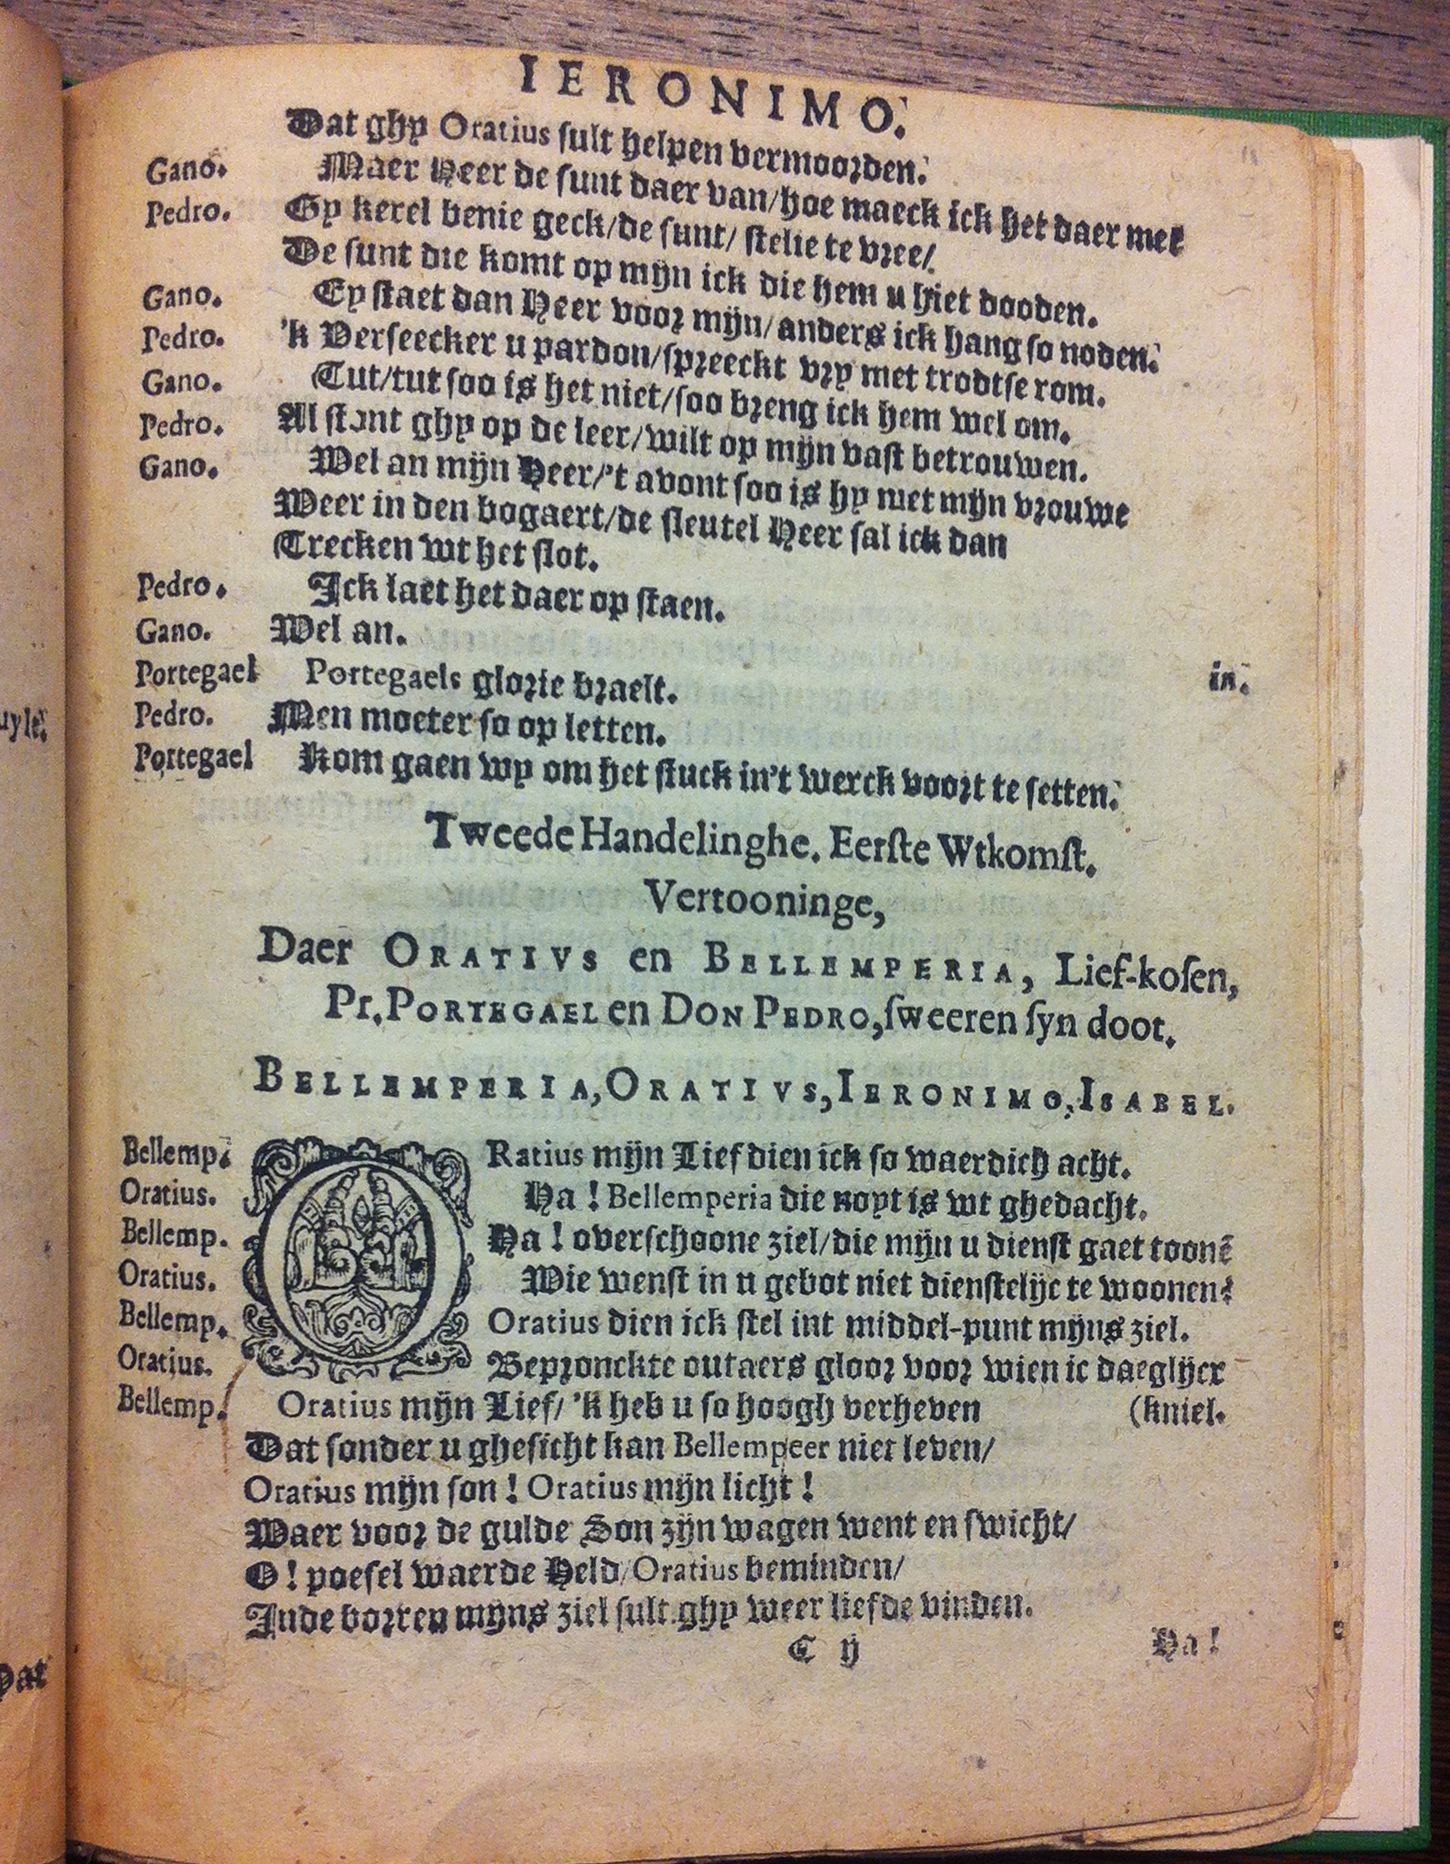 IERONIMO.
Dat ghy Oratius sult helpen vermoorden.
Gano. Maer Heer de sunt daer van/hoe maeck ick het daer met
Pedro. Gy kerel benie geck/de sunt/ stelie te vree/
De sunt die komt op mijn ick die hem u hiet dooden.
Gano. Ey staet dan Heer voor mijn/anders ick hang so noden.
Pedro. 'k Verseecker u pardon/spreeckt vry met trodtse rom.
Gano. Tut/tut soo is het niet/soo breng ick hem wel om.
Pedro. Al stont ghy op de leer/wilt op mijn vast betrouwen.
Gano. Wel an mijn Heer/'t avont soo is hy met mijn vrouwe
Weer in den bogaert/de sleutel Heer sal ick dan
Trecken wt het slot.
Pedro. Ick laet het daer op staen.
Gano. Wel an.
Portegael Portegaels glorie braelt. in.
Pedro. Men moeter so op letten.
Portegael Kom gaen wy om het stuck in't werck voort te setten.
Tweede Handelinghe. Eerste Wtkomst.
Vertooninge,
Daer ORATIVS en BELLEMPERIA, Lief-kosen,
Pr. PORTEGAEL en DON PEDRO, sweeren syn doot.
BELLEMPERIA, ORATIVS, IERONIMO, ISABEL.
Bellemp. ORatius mijn Lief dien ick so waerdich acht.
Oratius. Ha ! Bellemperia die noyt is wt ghedacht.
Bellemp. Ha ! overschoone ziel/die mijn u dienst gaet toonē
Oratius. Wie wenst in u gebot niet dienstelijc te woonen?
Bellemp. Oratius dien ick stel int middel-punt mijns ziel.
Oratius. Bepronckte outaers gloor voor wien ic daeglijcx
Bellemp. Oratius mijn Lief/ 'k heb u so hoogh verheven (kniel.
Dat sonder u ghesicht kan Bellempeer niet leven/
Oratius mijn son ! Oratius mijn licht !
Waer voor de gulde Son zijn wagen went en swicht/
O ! poesel waerde Held/Oratius beminden/
Inde borten mijns ziel sult ghy weer liefde vinden.
C ij Ha !
uyle.
Dat